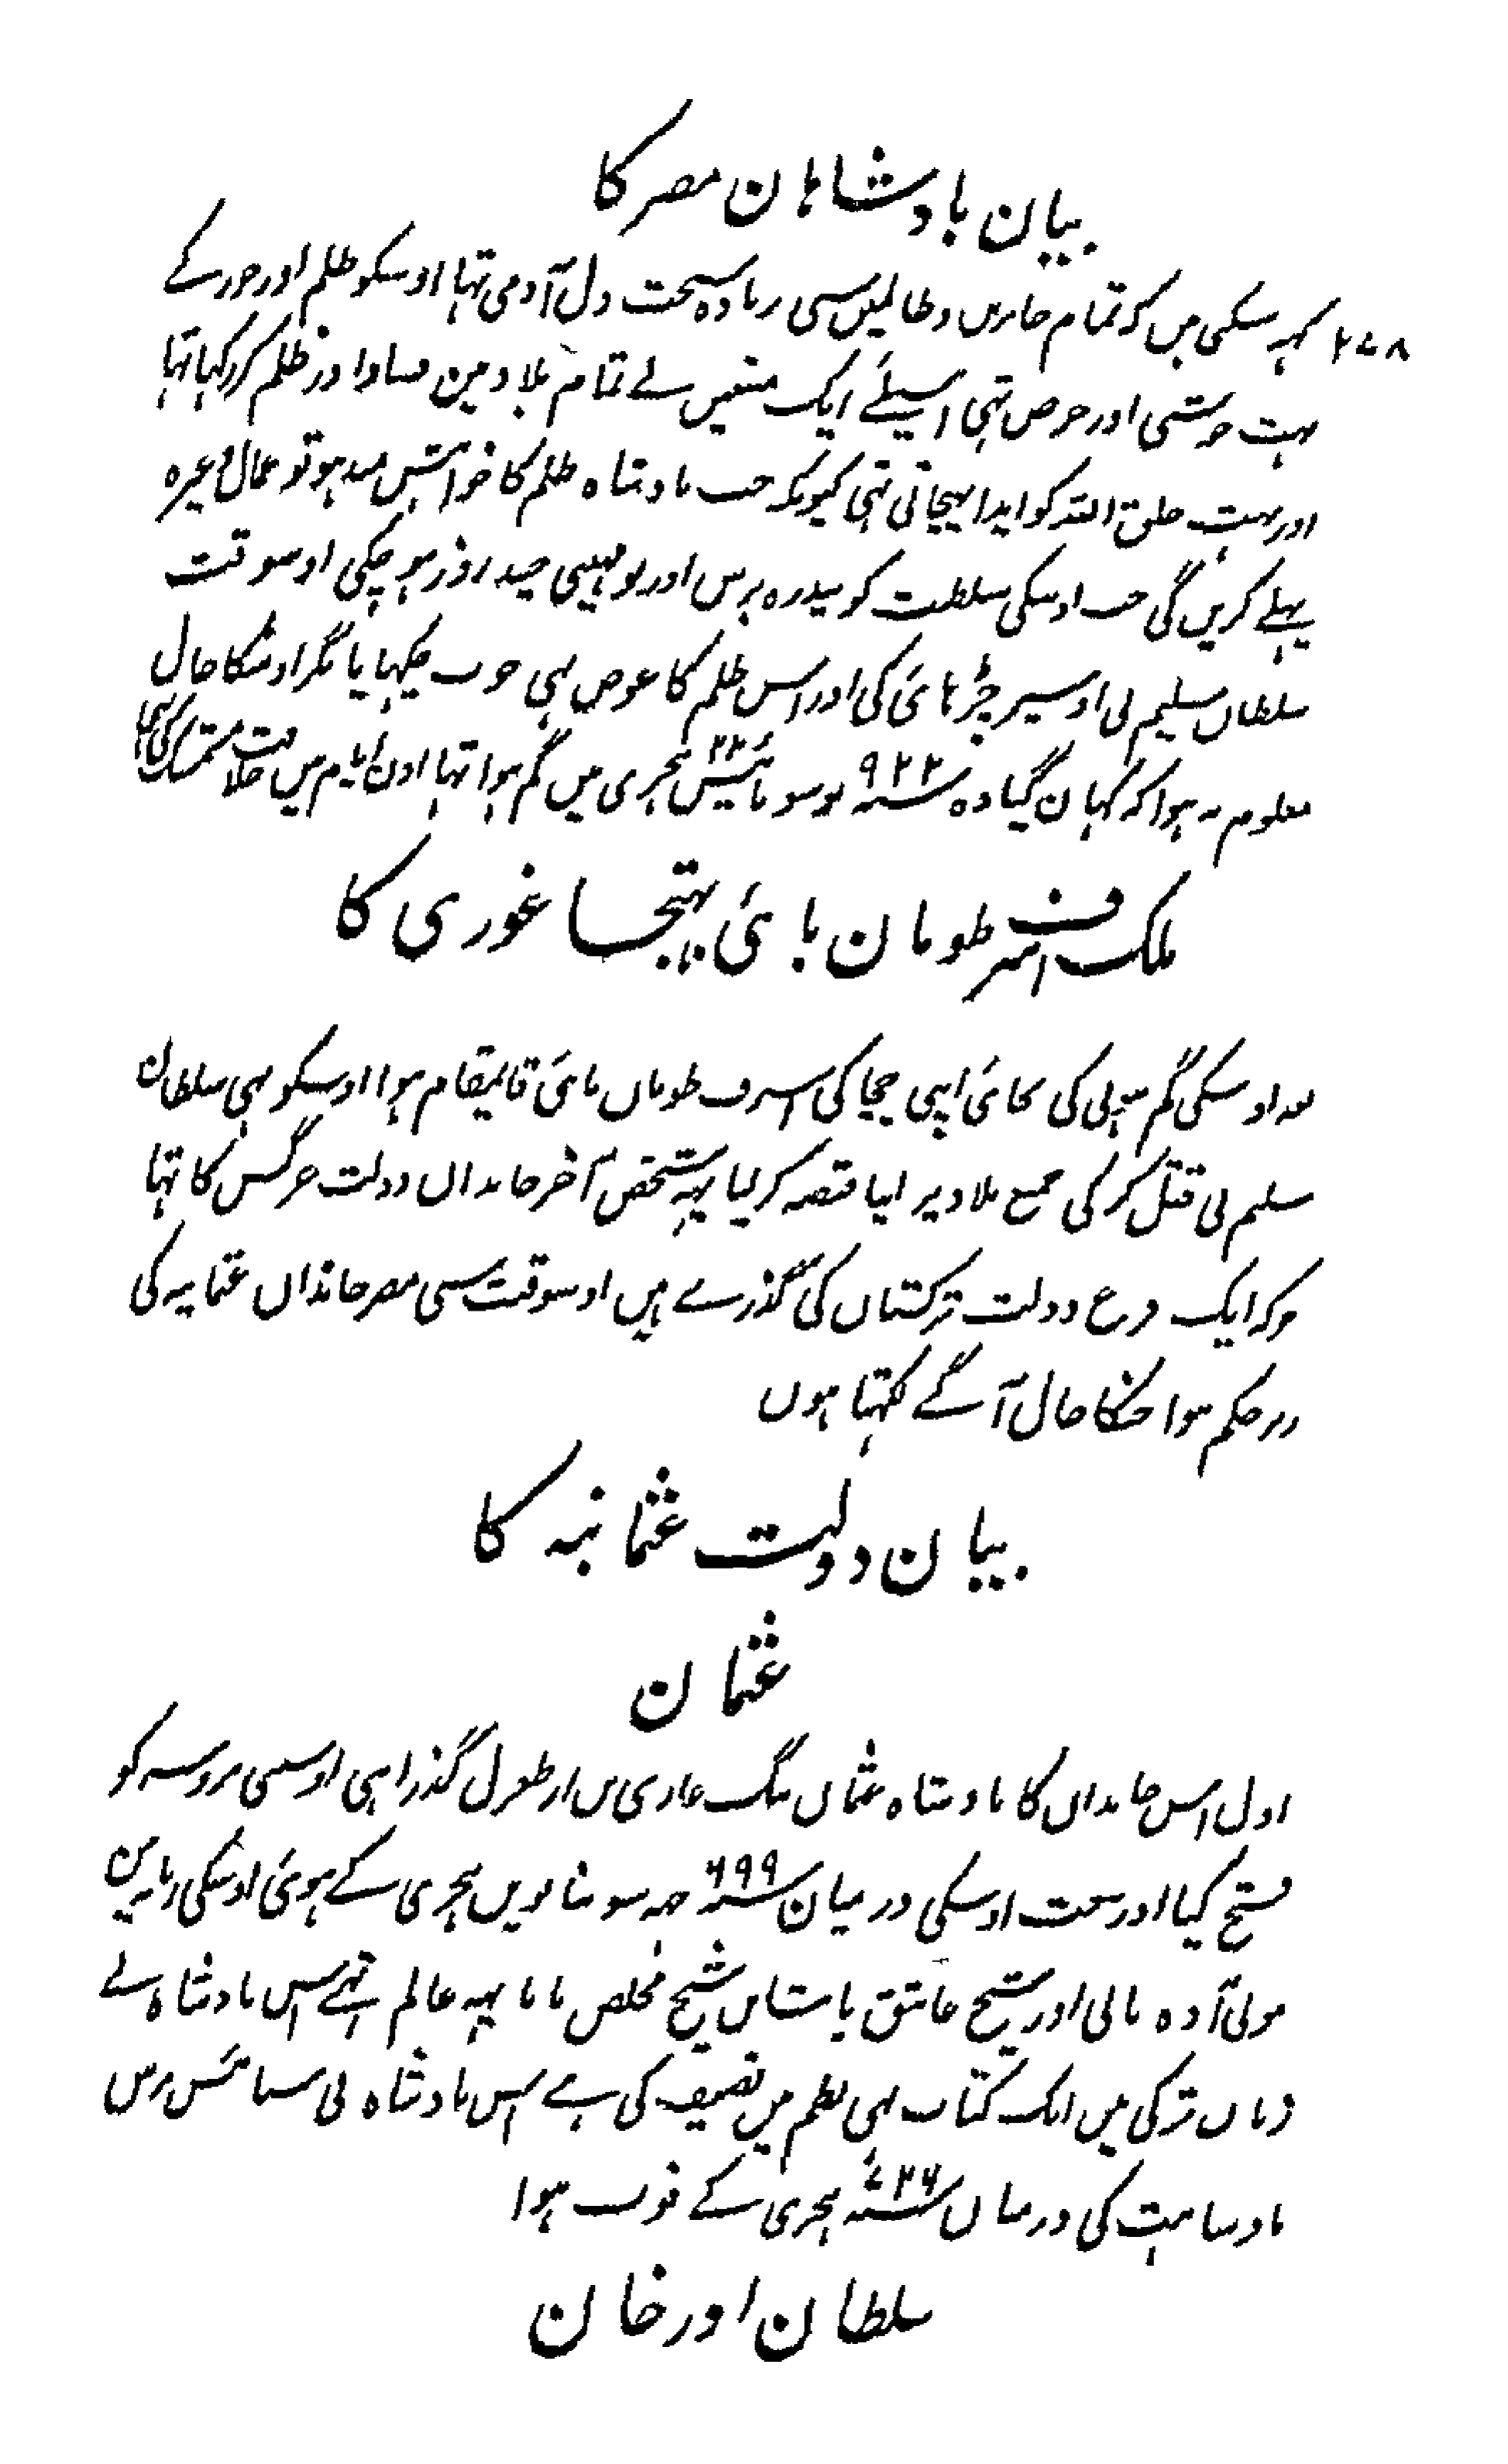 بیان بادشاہان مصر کا
۲۷۸
کہہ سکی ہیں کہ تمام جابرین و ظالمیں سی زیادہ سخت دل آدمی تہا اوسکو ظلم اور جور کے
بہت خوشی اور حرص تہی اسیلئے ایک متنفس نے تمام بلاد مین فساد اور ظلم کر رکہا تہا
اور بہت خلق اللہ کو ایذا پہچاتی تہی کیونکہ جب بادشاہ ظلم کا خواہشمند ہو تو عمال وغیرہ
پہلے کریں گی جب اوسکی سلطنت کو پندرہ برس اور نو مہینی چند روز ہو چکی اوسوقت
سلطان سلیم نی اوسپر چڑھائی کی اور اس ظلم کا عوض بہی خوب چکہایا مگر اوسکا حال
معلوم نہ ہوا کہ کہان گیا وہ سنہ ۹۲۲ نو سو بائیس ہجری میں گم ہوا تہا اون ایام میں خلافت متمسک کی تہی
ملک اشرف طومان بائی بہتیجا غوری کا
بعد اوسکی گم ہونی کی بجائی اپنی چچا کی اشرف طومان بائی قایمقام ہوا اوسکو بہی سلطان
سلیم نی قتل کر کی جمیع بلاد پر اپنا قبضہ کر لیا یہہ شخص آخر خاندان دولت جرگس کا تہا
جو کہ ایک فرع دولت ترکستان کی گذرے ہیں اوسوقت سی مصر خاندان عثمانیہ کی
زیر حکم ہوا جنکا حال آگے لکہتا ہوں
بیان دولت عثمانیہ کا
عثمان
اول اس خاندان کا بادشاہ عثمان بیگ غازی بن ارطغرل گذرا ہی اوسی بروسہ کو
فتح کیا اور بیعت اوسکی درمیان سنہ ۶۹۹ چہہ سو ننانویں ہجری کے ہوئی اوسکی زمانہ میں
مولی آدہ بالی اور شیخ عاشق پاشا بن شیخ مخلص بابا یہہ عالم تہے اس بادشاہ نے
زبان ترکی میں ایک کتاب بہی نظم میں تصنیف کی ہے اس بادشاہ نی ستائس برس
بادشاہت کی درمیان سنہ ۷۲۶ ہجری کے فوت ہوا
سلطان اورخان